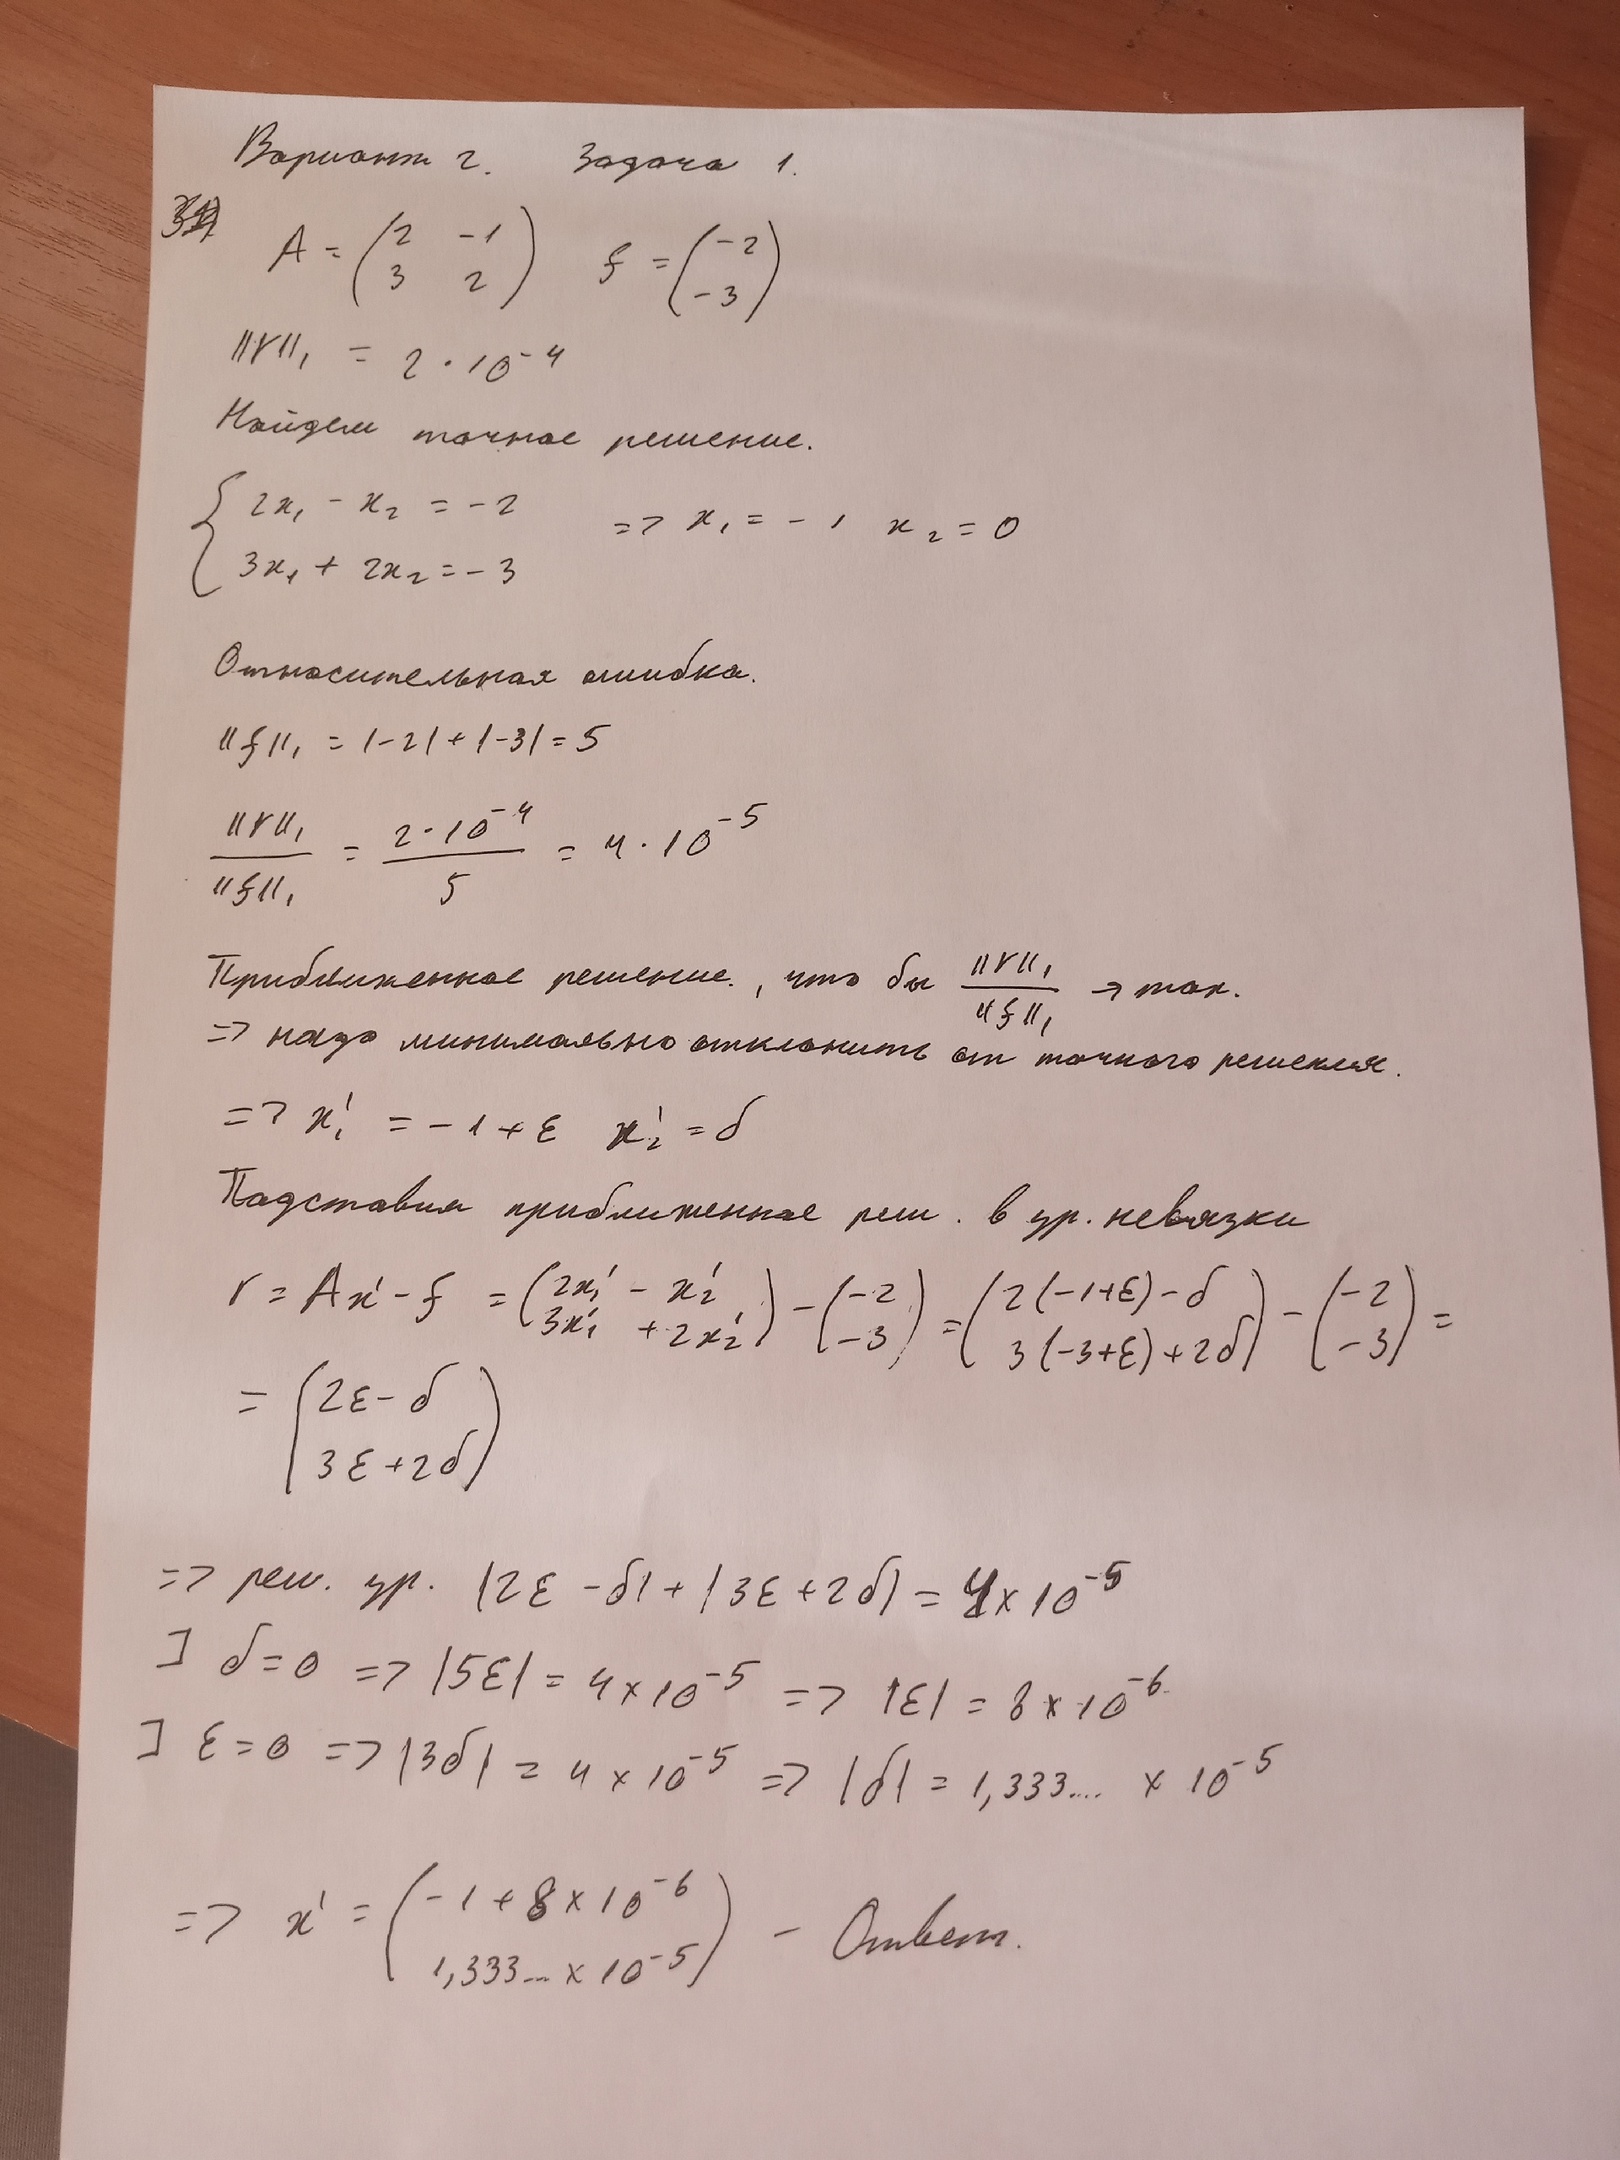 Вариант 2. Задача 1.
A = (2 -1; 3 2) f = (-2; -3)
||r||₁ = 2 · 10⁻⁴
Найдем точное решение.
{ 2x₁ - x₂ = -2
3x₁ + 2x₂ = -3 => x₁ = -1 x₂ = 0
Относительная ошибка.
||f||₁ = |-2| + |-3| = 5
||r||₁ / ||f||₁ = 2 · 10⁻⁴ / 5 = 4 · 10⁻⁵
Приближенное решение., что бы ||r||₁ / ||f||₁ →
=> надо минимально отклонить от точного решения.
=> x₁' = -1 + ε x₂' = δ
Подставим приближенное реш. в ур. невязки
r = Ax' - f = (2x₁' - x₂'; 3x₁' + 2x₂') - (-2; -3) = (2(-1+ε) - δ; 3(-3+ε) + 2δ) - (-2; -3) =
= (2ε - δ; 3ε + 2δ)
=> реш. ур. |2ε - δ| + |3ε + 2δ| = 4 × 10⁻⁵
] δ = 0 => |5ε| = 4 × 10⁻⁵ => |ε| = 8 × 10⁻⁶
] ε = 0 => |3δ| = 4 × 10⁻⁵ => |δ| = 1,333... × 10⁻⁵
=> x' = (-1 + 8 × 10⁻⁶; 1,333... × 10⁻⁵) - Ответ.